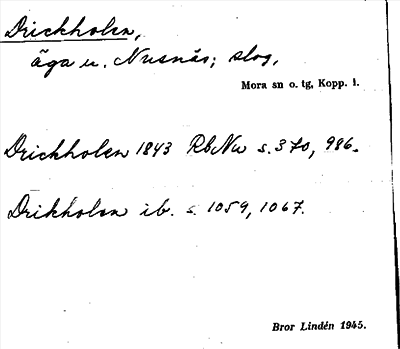 Drickholen,
äga u. Nusnäs; slog,
Mora sn o. tg, Kopp. l.
Drickholen 1843 RbNu s. 370, 986.
Drikholen ib. s. 1059, 1067.
Bror Lindén 1945.